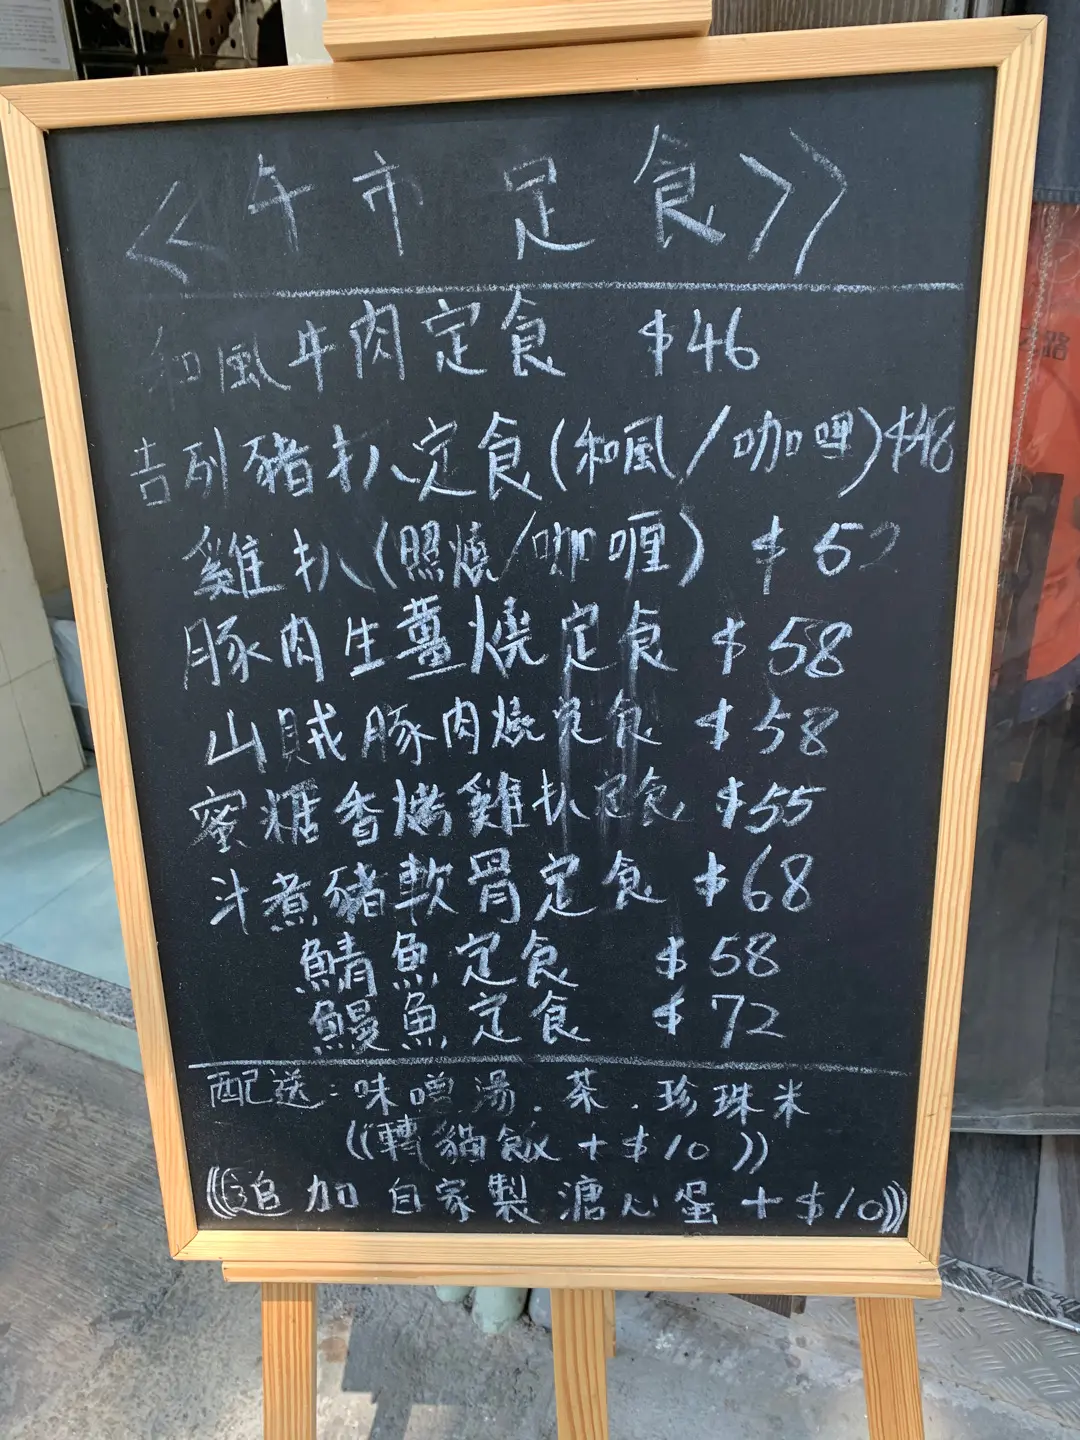 <<午市定食>>
和風牛肉定食 $46
吉列豬扒定食(和風/咖喱)$48
雞扒(照燒/咖喱) $52
豚肉生薑燒定食 $58
山賊豚肉燒定食 $58
蜜糖香烤雞扒定食 $55
汁煮豬軟骨定食 $68
鯖魚定食 $58
鰻魚定食 $72
配送：味噌湯．茶．珍珠米
((轉貓飯+$10))
(((追加自家製溏心蛋+$10)))
路